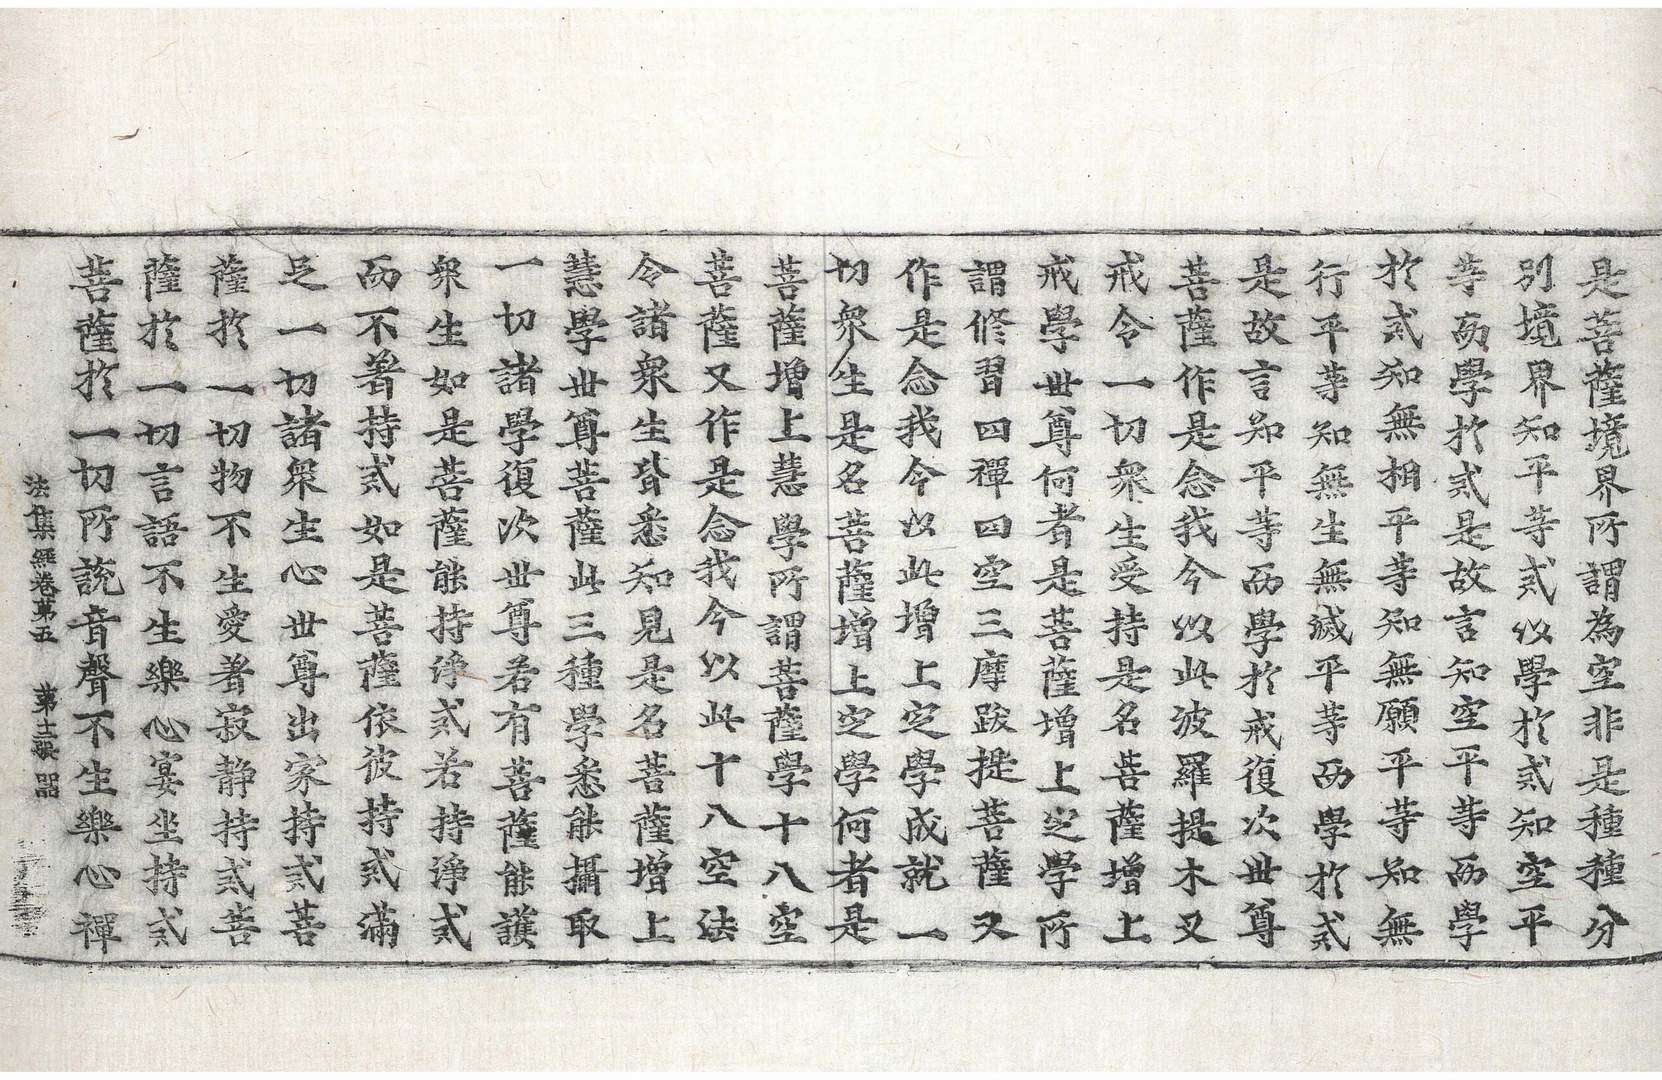 是菩薩境界所謂為空非是種種分
別境界知平等貳以學於貳知空平
等而學於貳是故言知空平等而學
於貳知無相平等知無願平等知無
行平等知無生無滅平等而學於貳
是故言知平等而學於戒復次世尊
菩薩作是念我今以此波羅提木叉
戒令一切衆生受持是名菩薩增上
戒學世尊何者是菩薩增上定學所
謂修習四禪四空三摩跋提菩薩又
作是念我今以此增上定學成就一
切衆生是名菩薩增上定學何者是
菩薩增上慧學所謂菩薩學十八空
菩薩又作是念我今以此十八空法
令諸衆生皆悉知見是名菩薩增上
慧學世尊菩薩此三種學悉能攝取
一切諸學復次世尊若有菩薩能護
衆生如是菩薩能持淨貳若持淨貳
而不著持貳如是菩薩依彼持貳滿
足一切諸衆生心世尊出家持貳菩
薩於一切物不生愛著寂静持貳菩
薩於一切言語不生樂心宴坐持貳
菩薩於一切所說音聲不生樂心禪
法集經卷第五 第十二張 詔